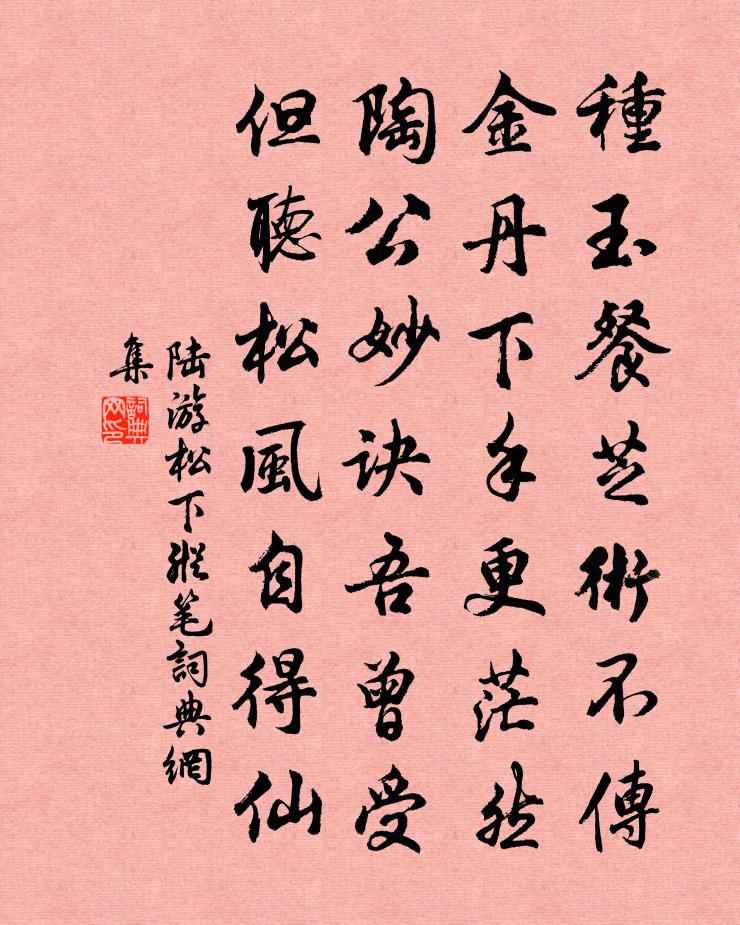 種玉餐芝術不傳
金丹下手更茫然
陶公妙訣吾曾受
但聽松風自得仙
陆游松下縱笔詞典網
集
詞典
网印